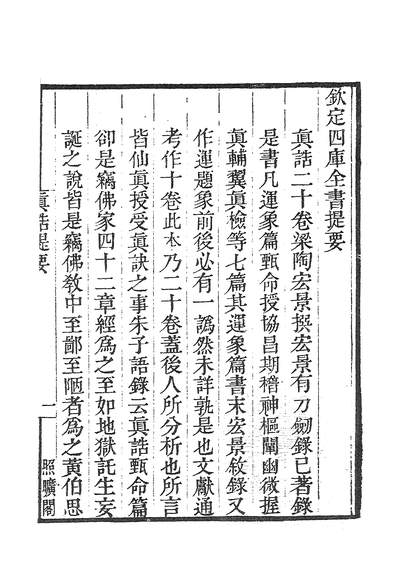 欽定四庫全書提要
真誥二十卷梁陶宏景撰宏景有刀劒錄已著錄
是書凡運象篇甄命授協昌期稽神樞闡幽微握
真輔翼真檢等七篇其運象篇書末宏景敘錄又
作運題象前後必有一譌然未詳孰是也文獻通
考作十卷此本乃二十卷葢後人所分析也所言
皆仙真授受真訣之事朱子語錄云真誥甄命篇
卻是竊佛家四十二章經為之至如地獄託生妄
誕之說皆是竊佛敎中至鄙至陋者為之黃伯思
真誥提要
一
照曠閣